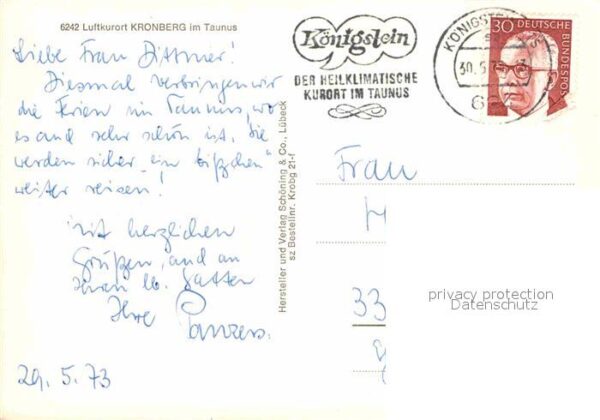 6242 Luftkurort KRONBERG im Taunus
Liebe Frau Dittmer!
Diesmal verbringen wir
die Ferien im Taunus, wo
es auch sehr schön ist. Sie
werden sicher "ein bißchen"
weiter reisen!
Mit herzlichen
Grüßen, auch an
Ihren lb. Gatten
Ihre
29.5.73
Hersteller und Verlag Schöning & Co., Lübeck
sz Bestellnr. Krobg 21-f
Königstein
DER HEILKLIMATISCHE
KURORT IM TAUNUS
KÖNIGSTEIN
30.5.73
62
30
DEUTSCHE
BUNDESPOST
Frau
33
privacy protection
Datenschutz